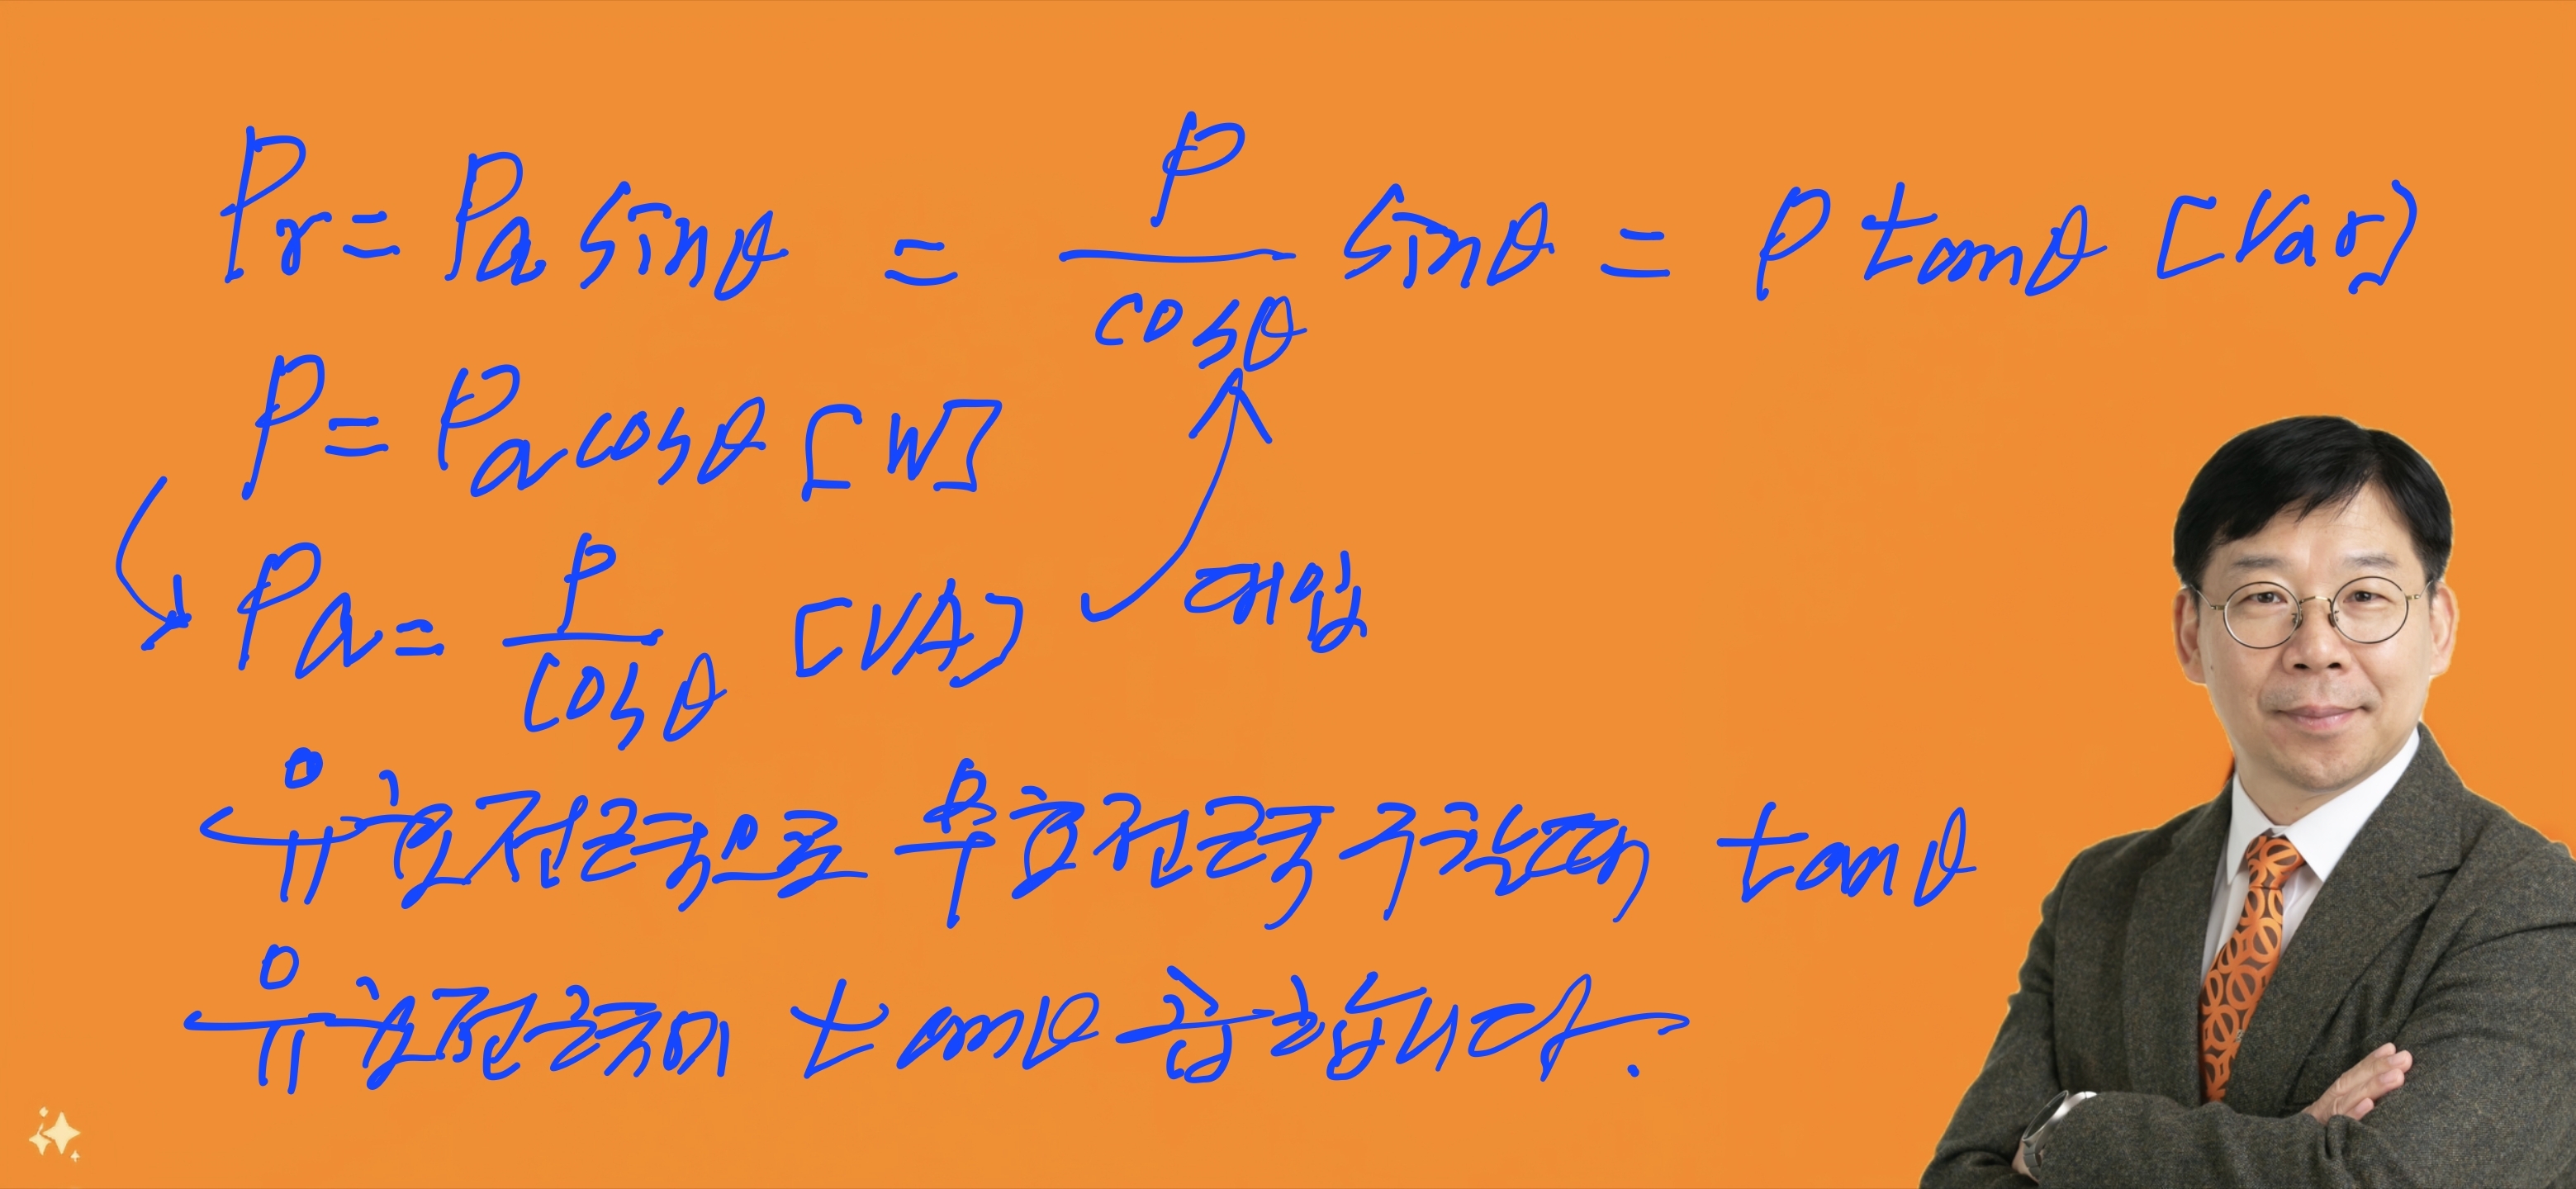 Pr = Pa sinθ = P/cosθ sinθ = P tanθ [Var]
P = Pa cosθ [W]
Pa = P/cosθ [VA] 대입
유효전력으로 무효전력 구할때 tanθ
유효전력에 tanθ 곱합니다.